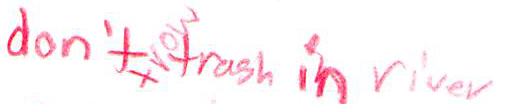 don't trow trash in river